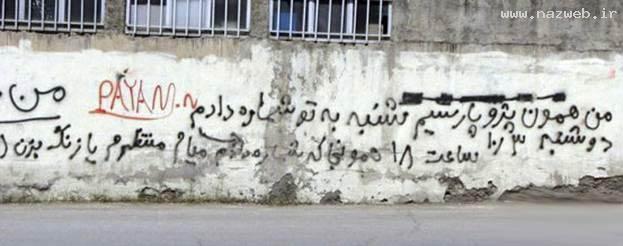 www.nazweb.ir
من همون پژو پارسیم شنبه به تو شماره دادم
PAYAM.N
من
دوشنبه ۳ / ۱۰ ساعت ۱۸ همونجا که شماره دادم میام منتظرم یا زنگ بزن